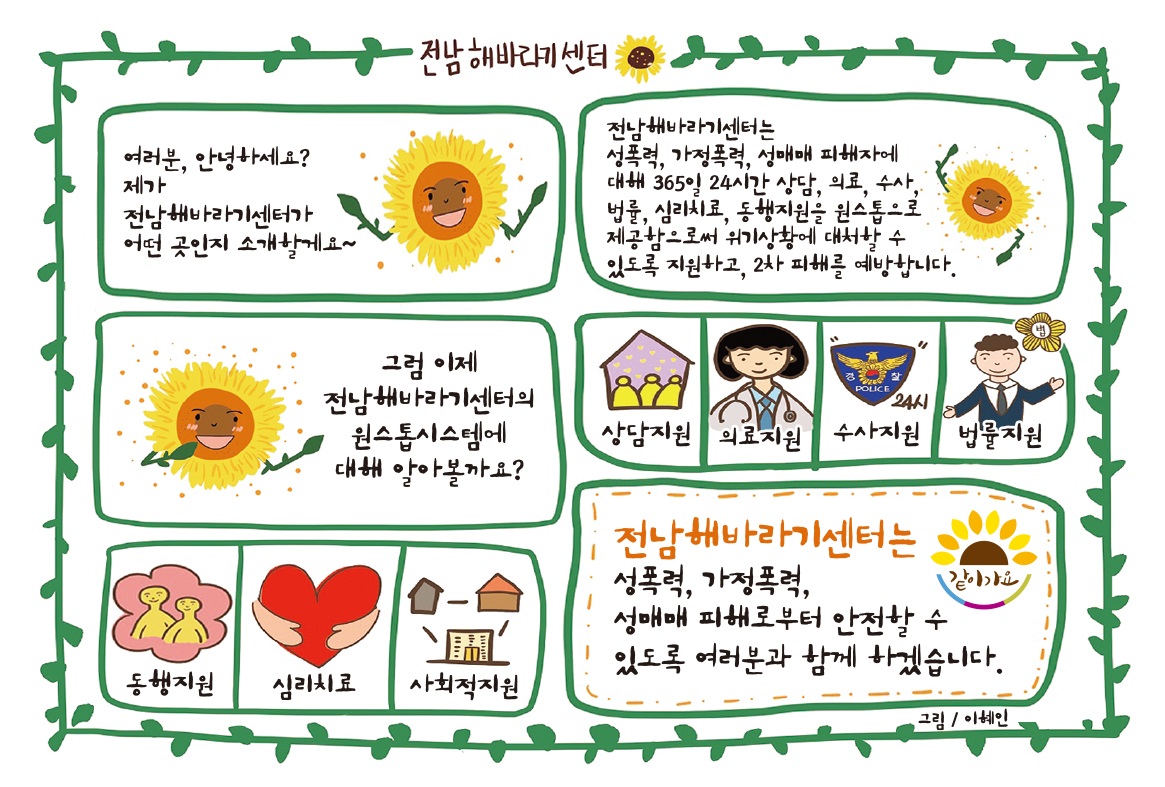 전남해바라기센터
여러분, 안녕하세요?
제가
전남해바라기센터가
어떤 곳인지 소개할게요~
전남해바라기센터는
성폭력, 가정폭력, 성매매 피해자에
대해 365일 24시간 상담, 의료, 수사,
법률, 심리치료, 동행지원을 원스톱으로
제공함으로써 위기상황에 대처할 수
있도록 지원하고, 2차 피해를 예방합니다.
그럼 이제
전남해바라기센터의
원스톱시스템에
대해 알아볼까요?
상담지원
의료지원
경찰
POLICE
24시
수사지원
법
법률지원
동행지원
심리치료
사회적지원
전남해바라기센터는
성폭력, 가정폭력,
성매매 피해로부터 안전할 수
있도록 여러분과 함께 하겠습니다.
같이가요
그림 / 이혜인